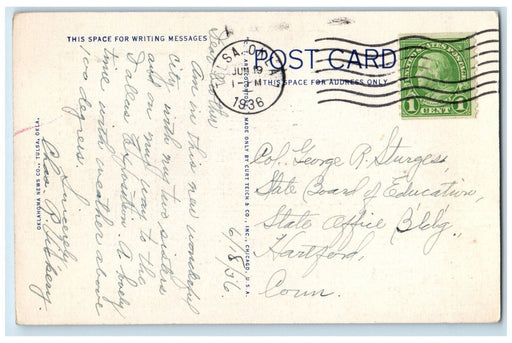 THIS SPACE FOR WRITING MESSAGES
POST CARD
THIS SPACE FOR ADDRESS ONLY
OKLAHOMA NEWS CO., TULSA, OKLA.
MADE ONLY BY CURT TEICH & CO., INC., CHICAGO, U.S.A.
SA, OKLA
JUN 19
1936
UNITED STATES POSTAGE
1 CENT 1
6/18/36.
Am in this new wonderful
City with my two sisters
and on my way to the
Dallas Exposition. A lovely
time with weather above
100 degrees.
Sincerely
Chas. B.
Col. George R. Sturges,
State Board of Education,
State Office Bldg.,
Hartford,
Conn.